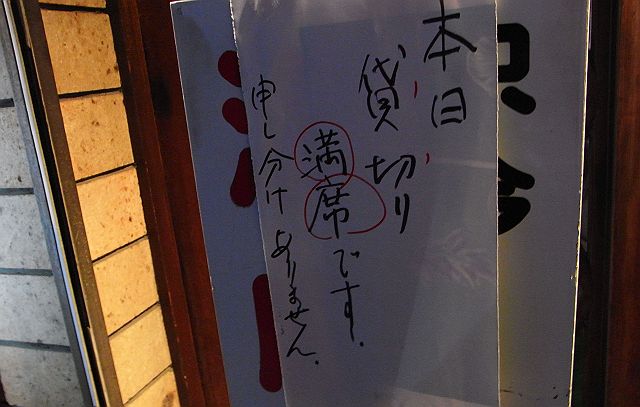 本日
貸切り
満席です.
申し分けありません.